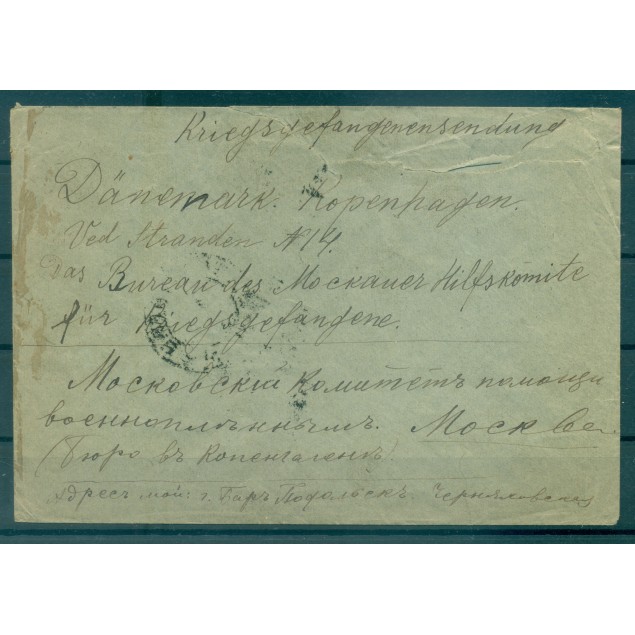 Kriegsgefangenensendung
Dänemark. Kopenhagen.
Ved Stranden № 14.
Das Bureau des Mockauer Hilfskomite
für Kriegsgefangene.
Московскiй Комитетъ помощи
военноплѣннымъ. Москва.
(Бюро въ Копенгагенѣ)
Адресъ мой: г. Баръ Подольскъ. Черняховская